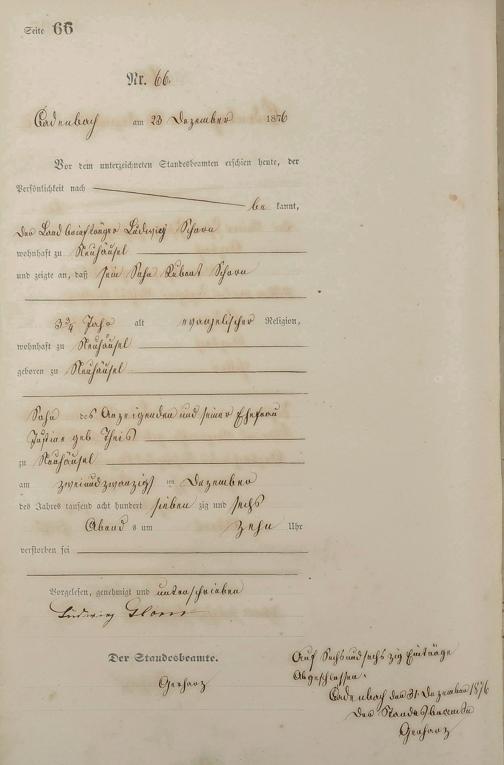 Seite 66
Nr. 66.
Cadenbach am 23 Dezember 1876
Vor dem unterzeichneten Standesbeamten erschien heute, der
Persönlichkeit nach
be kannt,
der Landbriefträger Ludwig
wohnhaft zu Neuhäusel
und zeigte an, daß sein Sohn
3 3/4 Jahr alt evangelischer Religion,
wohnhaft zu Neuhäusel
geboren zu Neuhäusel
Sohn des Anzeigenden und seiner Ehefrau
Justine geb Theis
zu Neuhäusel
am zweiundzwanzigst en Dezember
des Jahres tausend acht hundert sieben zig und sechs
Abend s um zehn Uhr
verstorben sei
Vorgelesen, genehmigt und unterschrieben
Ludwig
Der Standesbeamte.
Gerharz
Auf Sechsundsechszig Einträge
Abgeschlossen.
Cadenbach den 31. Dezember 1876
Der Standesbeamte
Gerharz